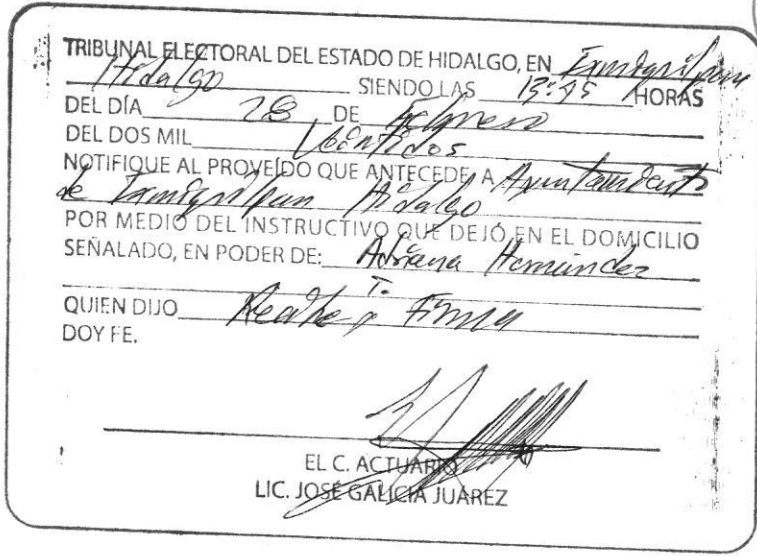 TRIBUNAL ELECTORAL DEL ESTADO DE HIDALGO, EN Ixmiquilpan
Hidalgo SIENDO LAS 13:45 HORAS
DEL DÍA 28 DE febrero
DEL DOS MIL Veintidos
NOTIFIQUE AL PROVEÍDO QUE ANTECEDE A Ayuntamiento
de Ixmiquilpan Hidalgo
POR MEDIO DEL INSTRUCTIVO QUE DEJÓ EN EL DOMICILIO
SEÑALADO, EN PODER DE: Adriana Hernández
T.
QUIEN DIJO Recibe y Firma
DOY FE.
EL C. ACTUARIO
LIC. JOSÉ GALICIA JUÁREZ